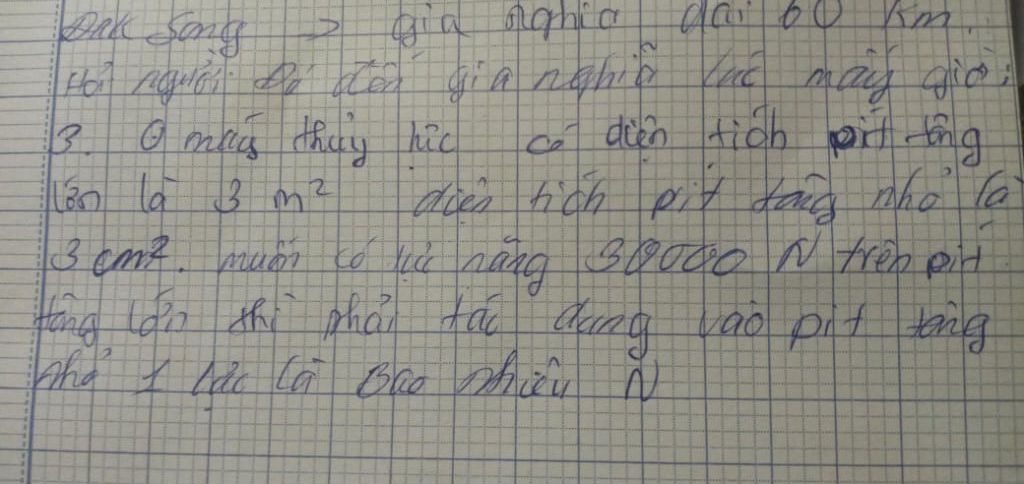 Đăk Song -> gia nghĩa dài 60 km.
Hỏi người đó đến gia nghĩa lúc mấy giờ:
3. Ở máy thủy lực có diện tích pít tông
lớn là 3 m² diện tích pít tông nhỏ là
3 cm². muốn có lực nâng 30000 N trên pít
tông lớn thì phải tác dụng vào pít tông
nhỏ 1 lực là Bao nhiêu N